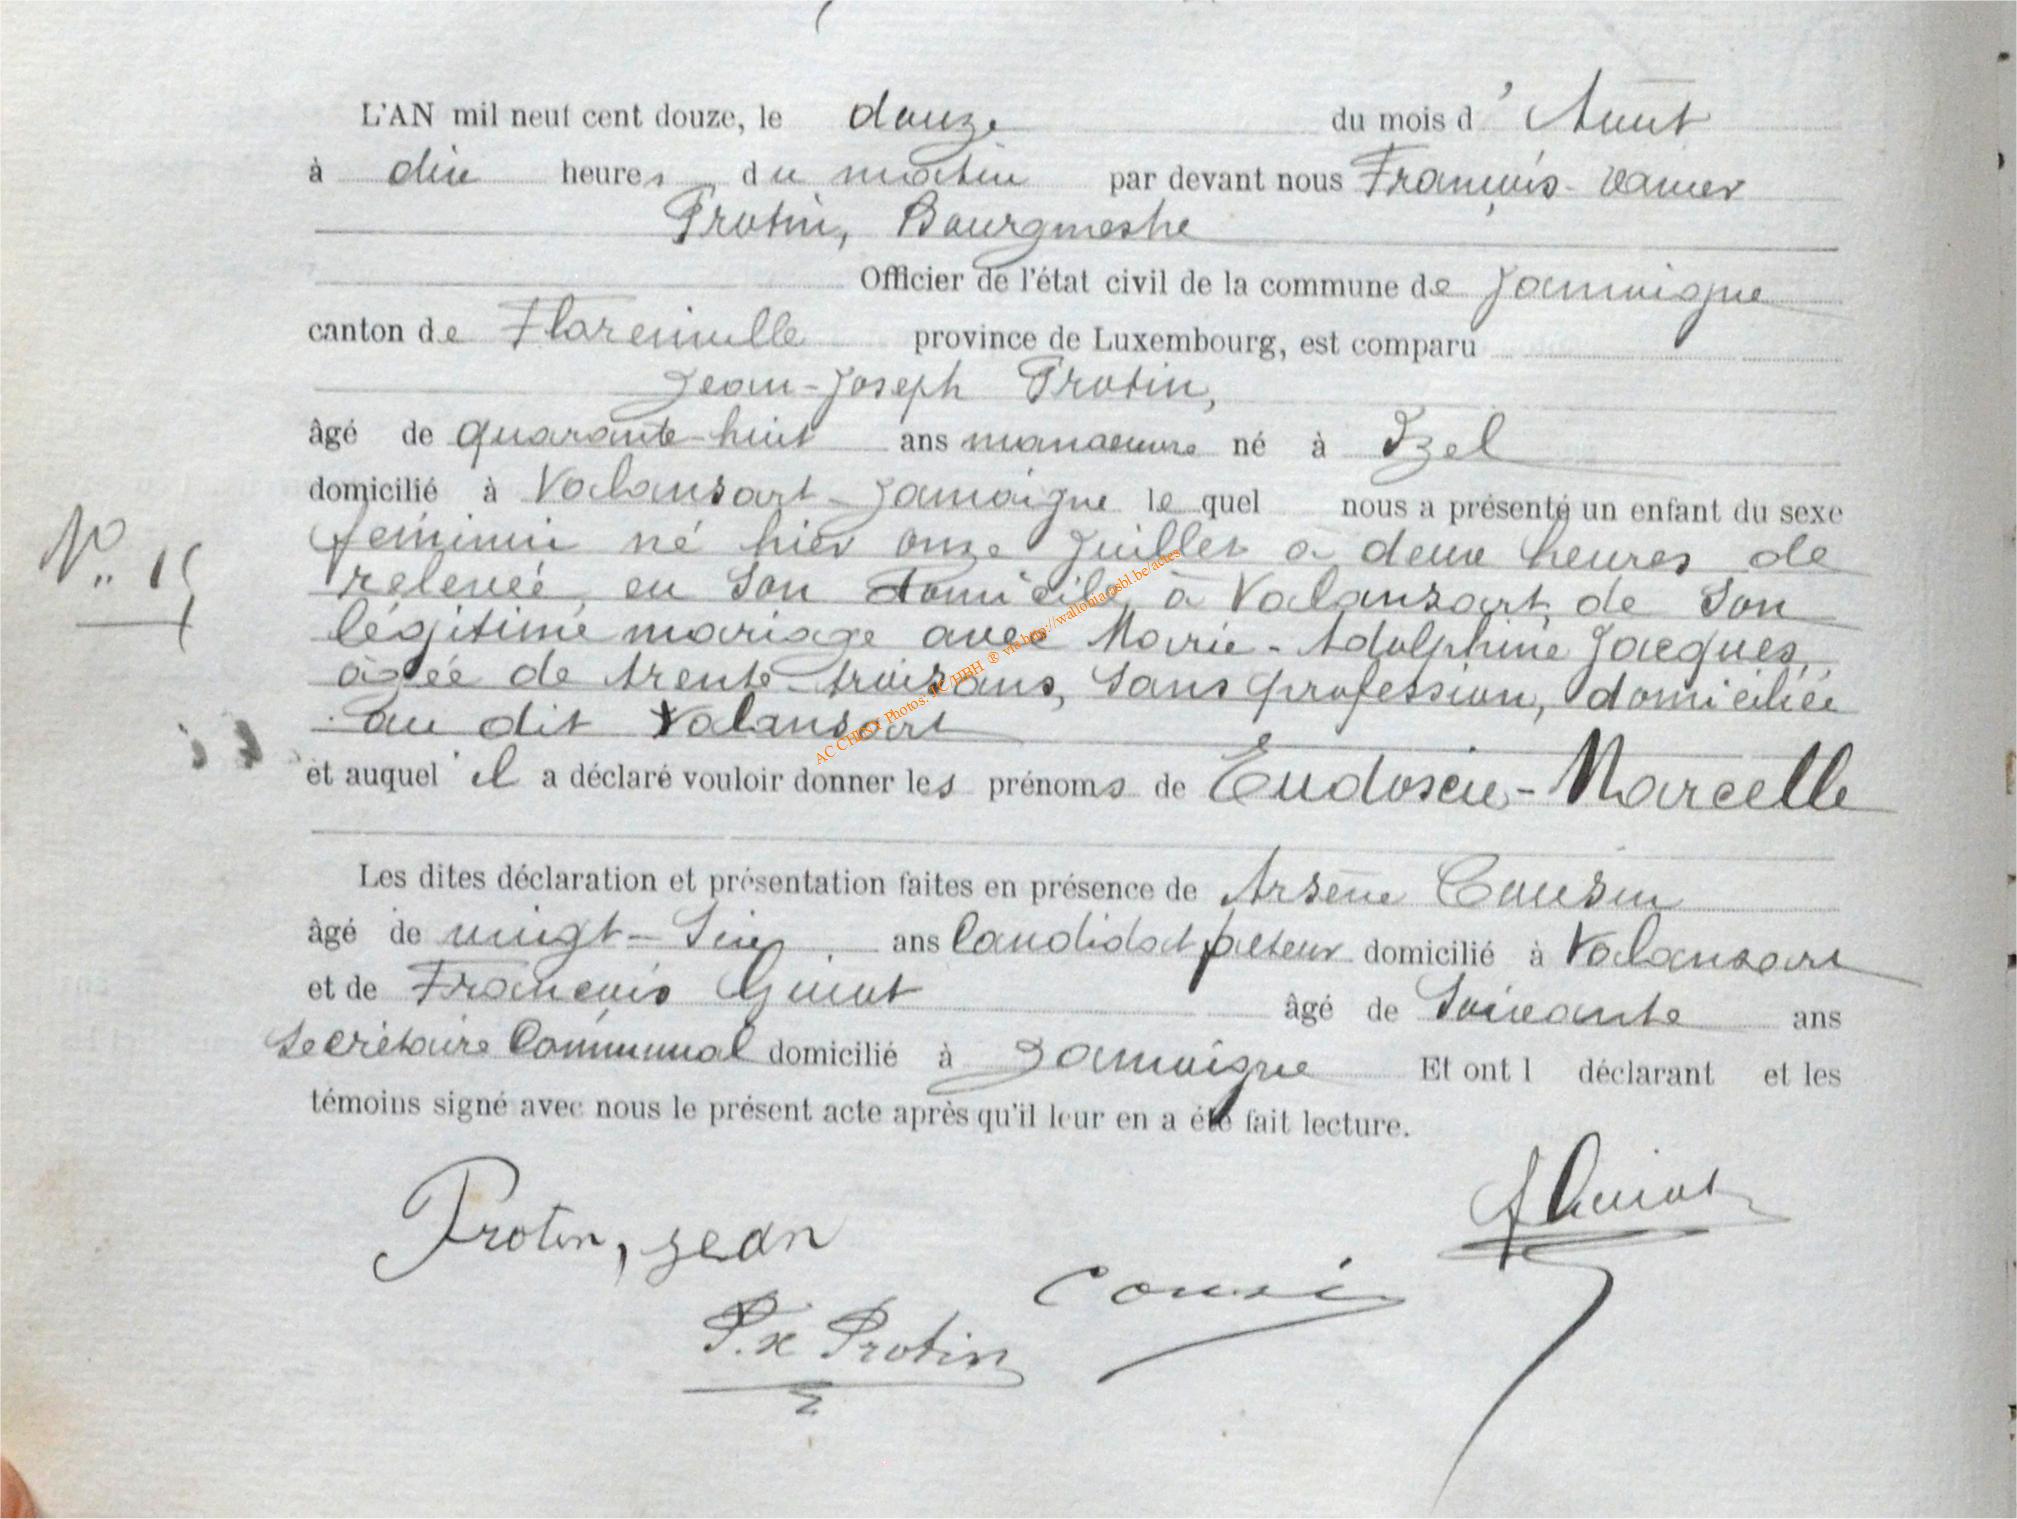 L'AN mil neuf cent douze, le douze du mois d'Août
à dix heures du matin par devant nous François-Xavier
Protin, Bourgmestre
Officier de l'état civil de la commune de Jamoigne
canton de Florenville province de Luxembourg, est comparu
Jean-Joseph Protin,
âgé de quarante-huit ans manoeuvre né à Izel
domicilié à Valansart-Jamoigne lequel nous a présenté un enfant du sexe
féminin né hier onze Juillet à deux heures de
relevée, en son domicile, à Valansart, de son
légitime mariage avec Marie-Adolphine Jacques,
âgée de trente-trois ans, sans profession, domiciliée
au dit Valansart
et auquel il a déclaré vouloir donner les prénoms de Eudoxie-Marcelle
N° 15
Les dites déclaration et présentation faites en présence de Arsène Cousin
âgé de vingt-six ans Candidat facteur domicilié à Valansart
et de François Guiot âgé de soixante ans
secrétaire Communal domicilié à Jamoigne Et ont l déclarant et les
témoins signé avec nous le présent acte après qu'il leur en a été fait lecture.
Protin, jean
F Guiot
Cousin
F.x Protin
AC CHINY Photos: JC HBH ® via http://wallonia-asbl.be/actes